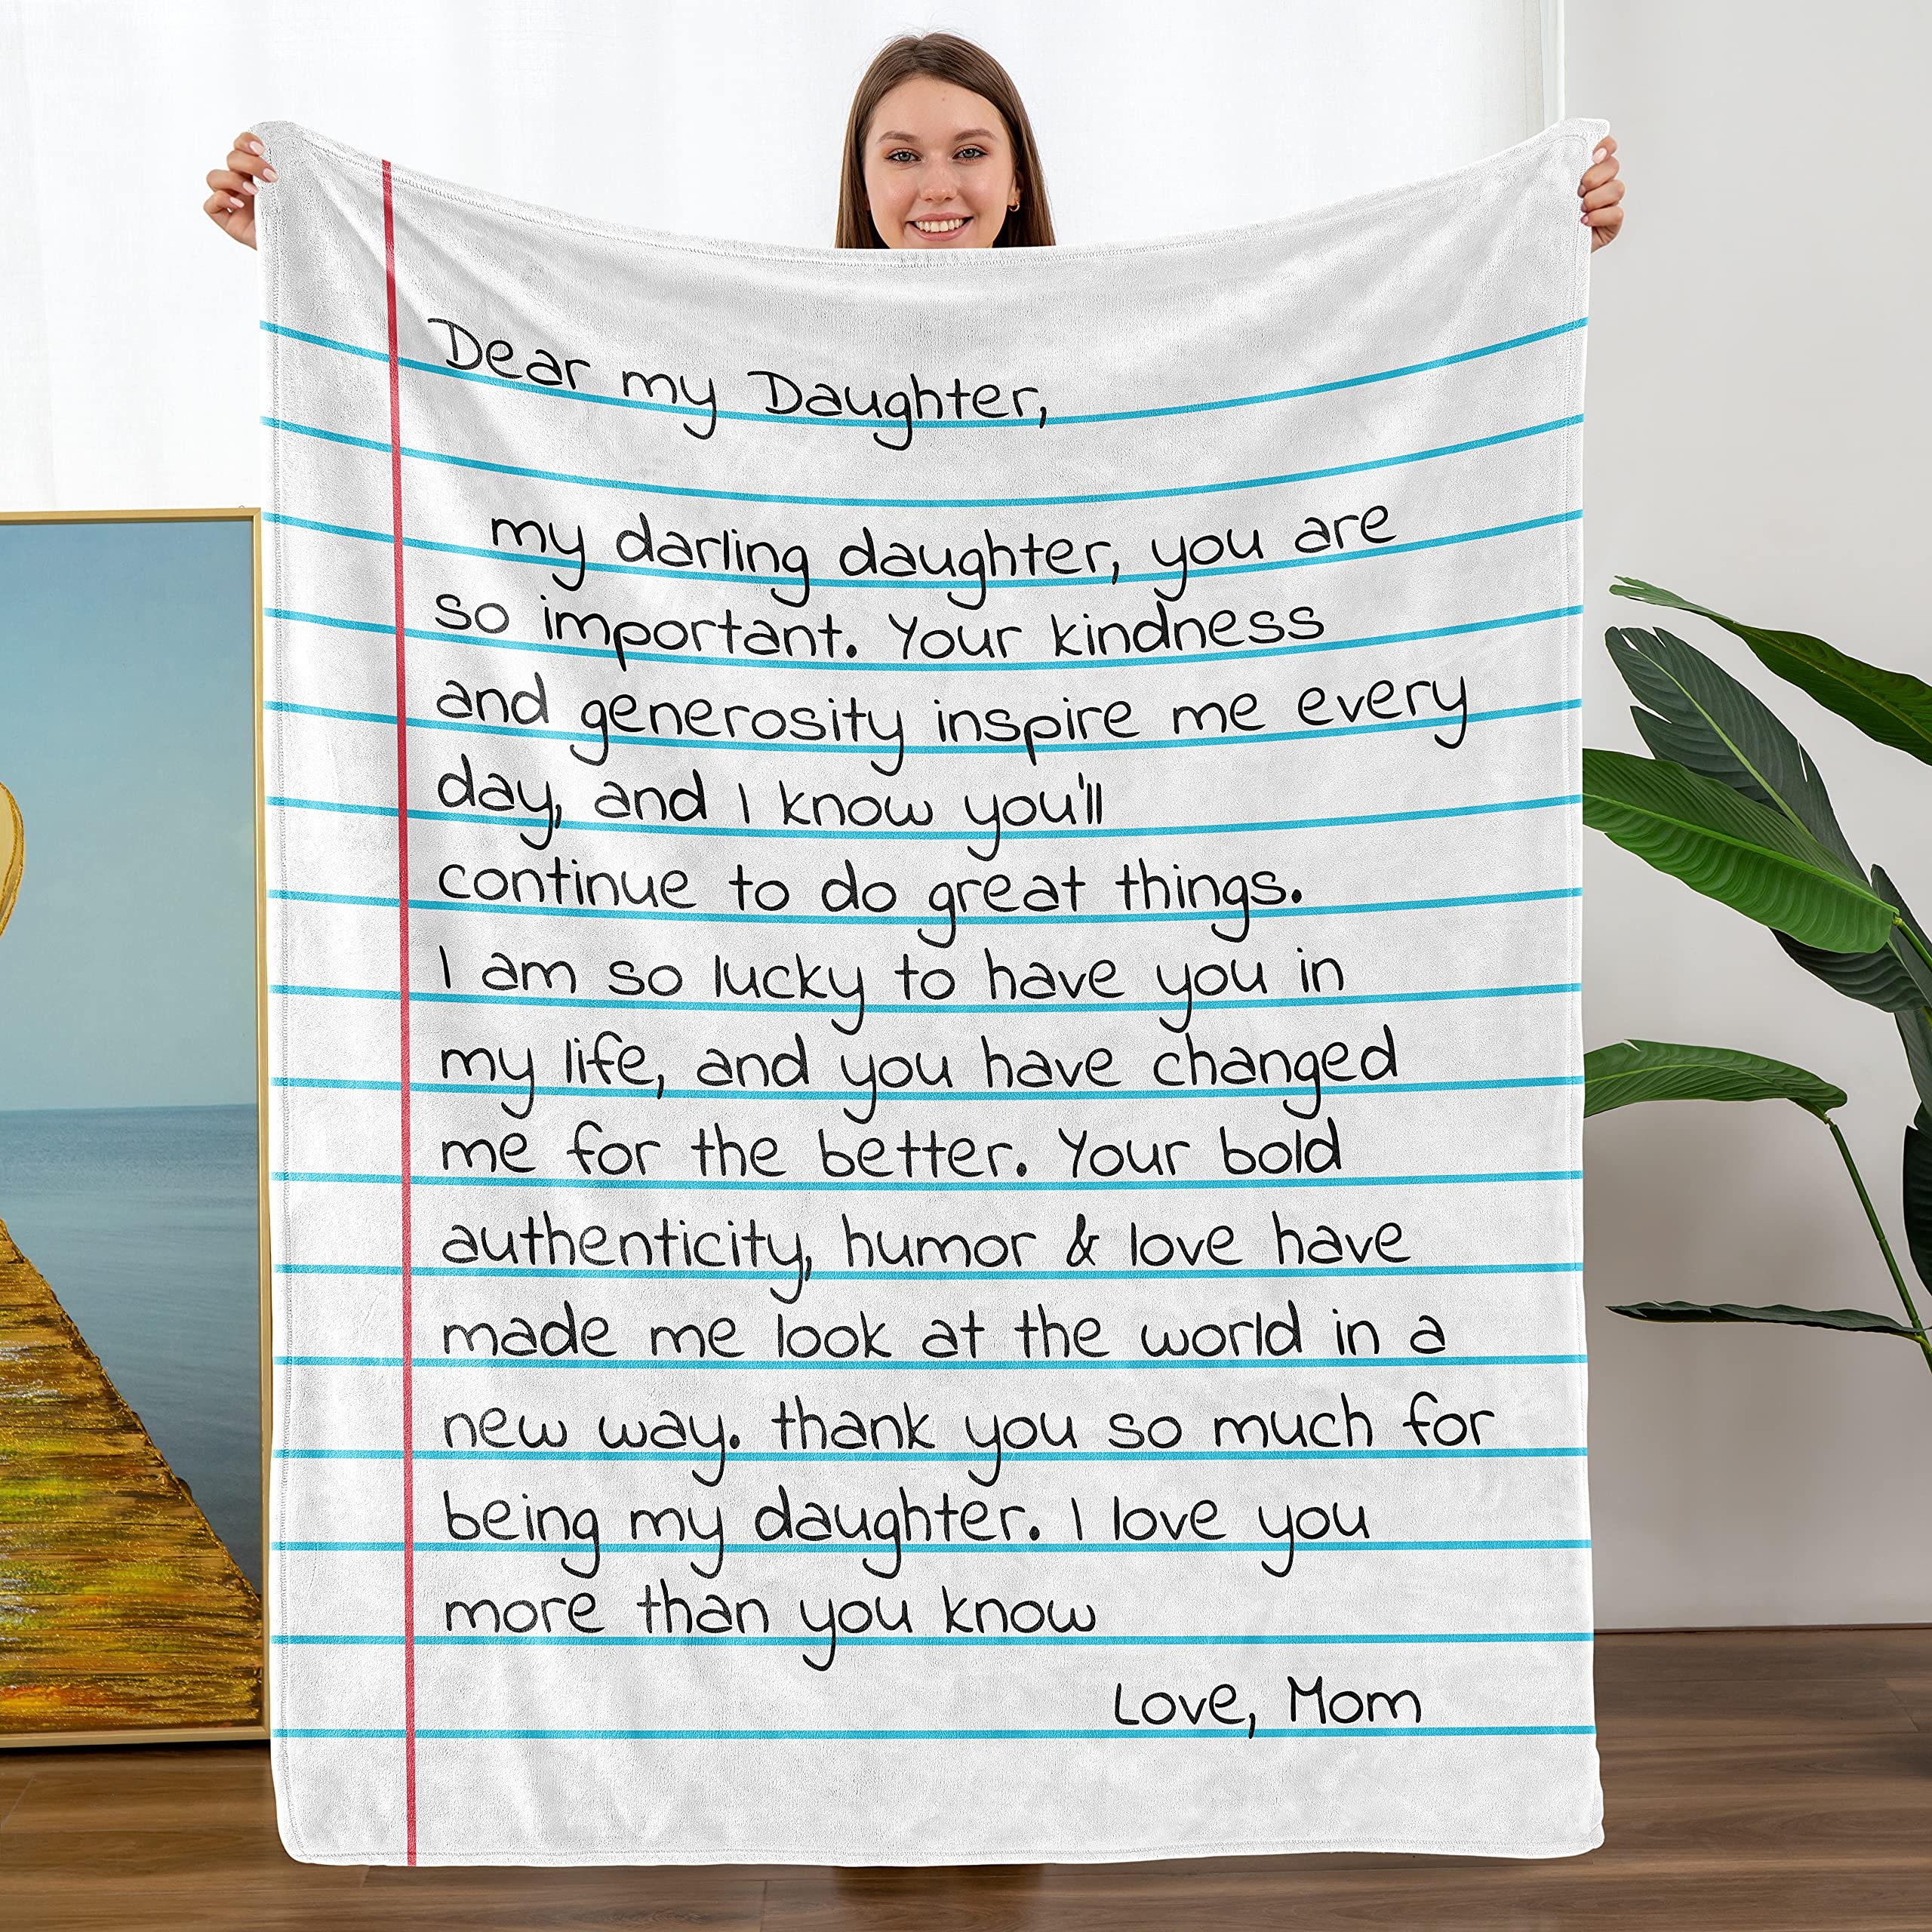 Dear my Daughter,
my darling daughter, you are
so important. Your kindness
and generosity inspire me every
day, and I know you'll
continue to do great things.
I am so lucky to have you in
my life, and you have changed
me for the better. Your bold
authenticity, humor & love have
made me look at the world in a
new way. thank you so much for
being my daughter. I love you
more than you know
Love, Mom